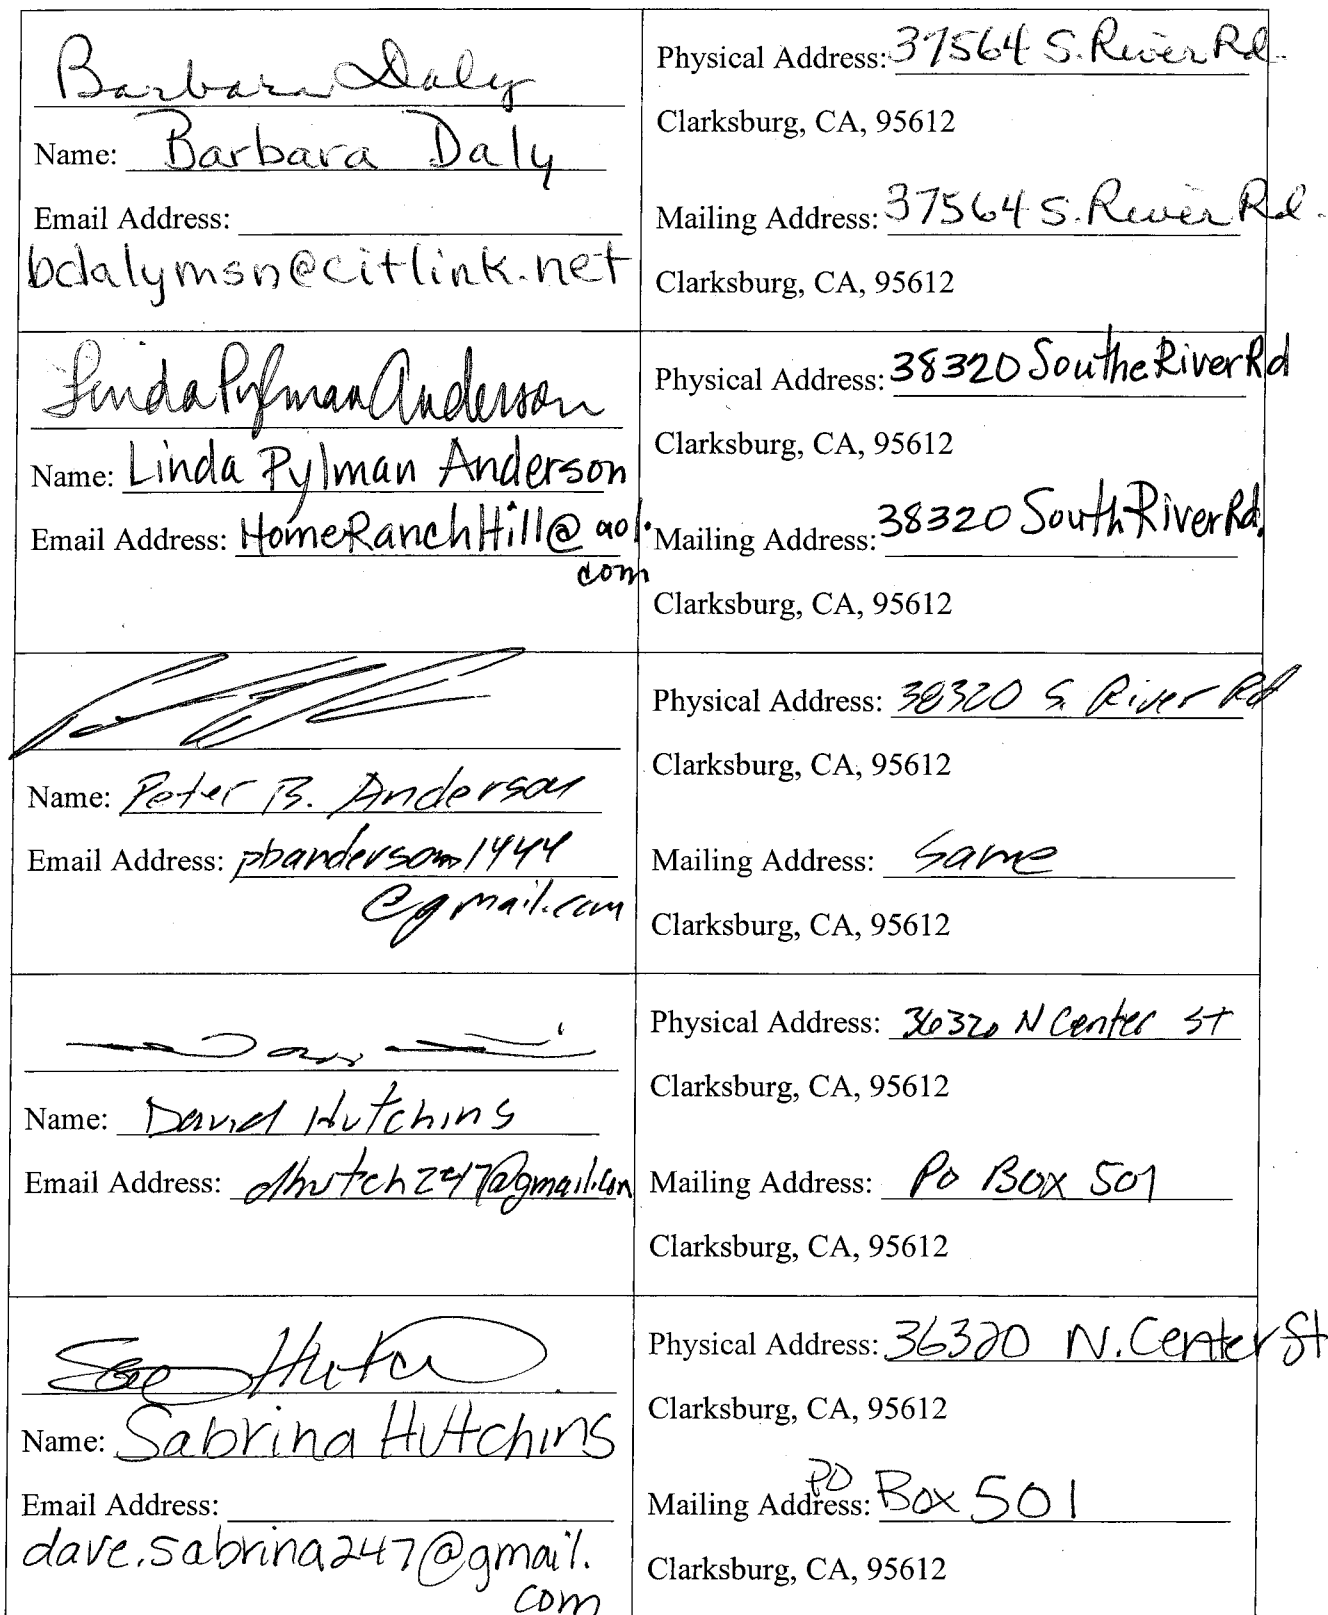 Barbara Daly
Physical Address: 37564 S. River Rd.
Clarksburg, CA, 95612
Name: Barbara Daly
Email Address:
bdalymsn@citlink.net
Mailing Address: 37564 S. River Rd.
Clarksburg, CA, 95612
Linda Pylman Anderson
Name: Linda Pylman Anderson
Email Address: HomeRanchHill@aol.
com
Physical Address: 38320 Southe River Rd
Clarksburg, CA, 95612
Mailing Address: 38320 South River Rd.
Clarksburg, CA, 95612
Name: Peter B. Anderson
Email Address: pbanderson1444
@gmail.com
Physical Address: 38320 S. River Rd
Clarksburg, CA, 95612
Mailing Address: Same
Clarksburg, CA, 95612
Name: David Hutchins
Email Address: dhutch247@gmail.com
Physical Address: 36320 N Center St
Clarksburg, CA, 95612
Mailing Address: PO Box 501
Clarksburg, CA, 95612
Name: Sabrina Hutchins
Email Address:
dave.sabrina247@gmail.
com
Physical Address: 36320 N. Center St
Clarksburg, CA, 95612
Mailing Address: PO Box 501
Clarksburg, CA, 95612